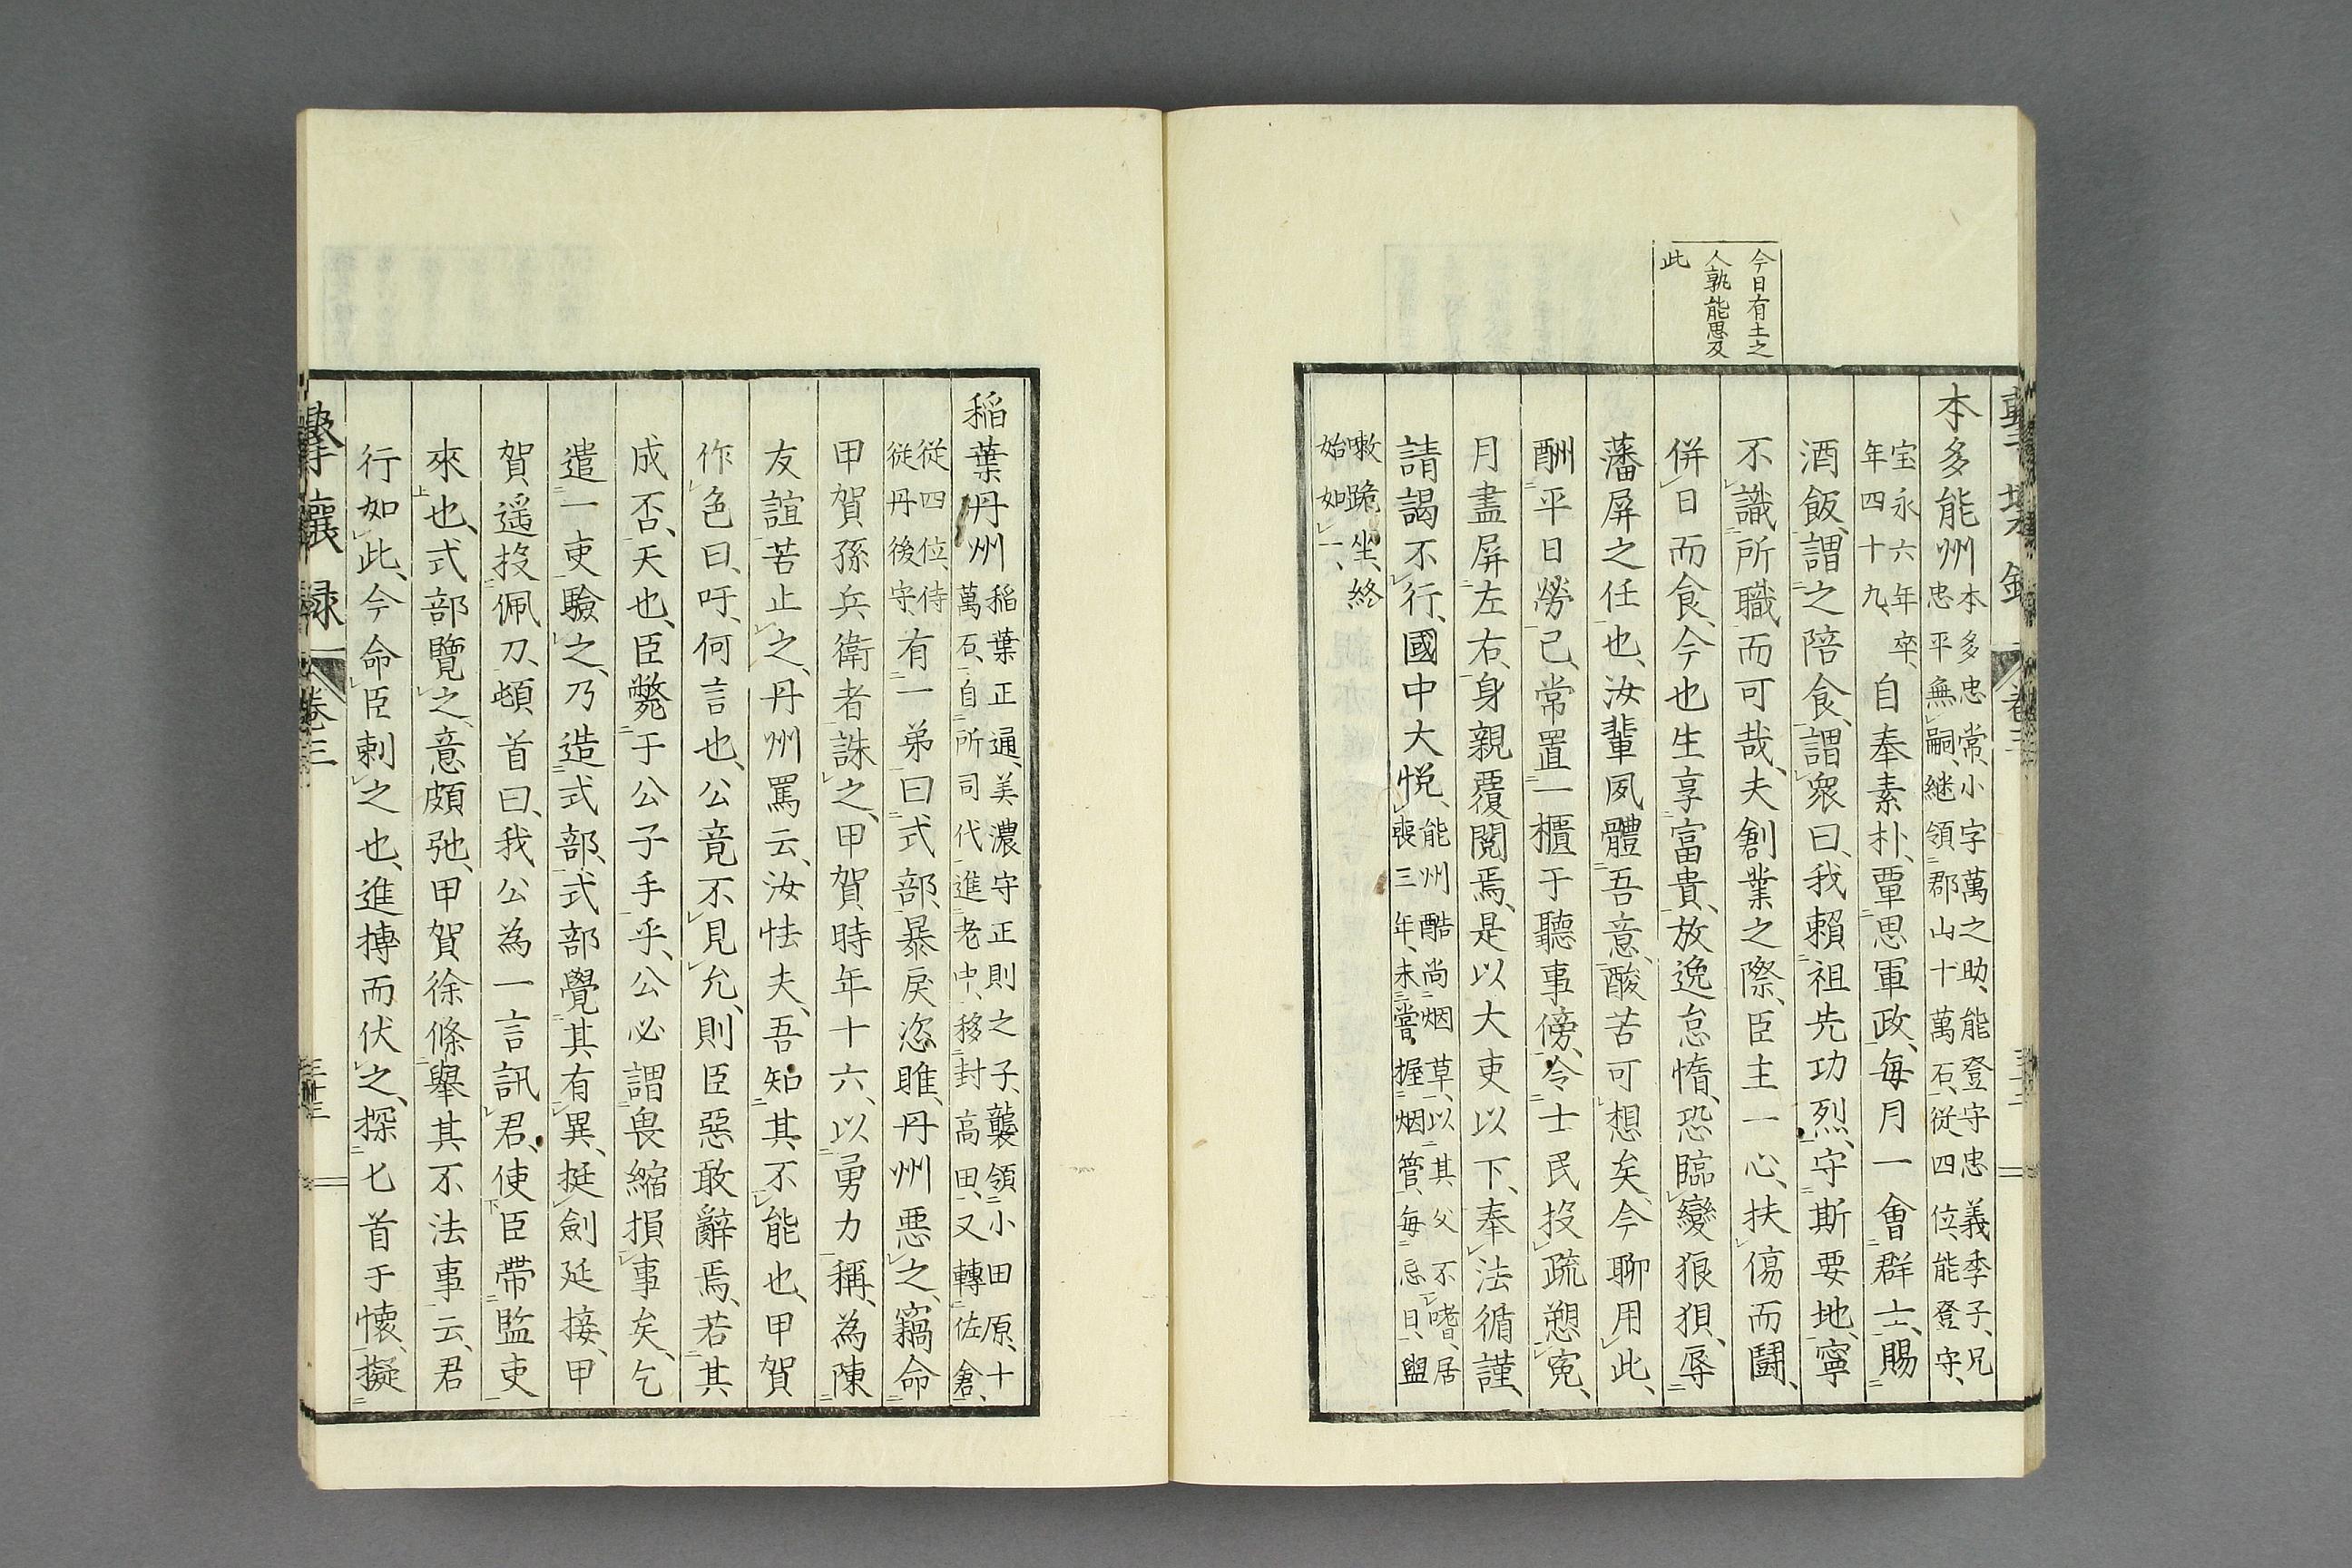 今日有土之
人孰能思及
此
本多能州本多忠常、小字萬之助、能登守忠義季子、兄
忠平無嗣、継領郡山十萬石、従四位、能登守、
宝永六年卒、
年四十九、自奉素朴、覃思軍政、毎月一會群士、賜
酒飯、謂之陪食、謂衆曰、我賴祖先功烈、守斯要地、寧
不識所職而可哉、夫創業之際、臣主一心、扶傷而鬪、
併日而食、今也生享富貴、放逸怠惰、恐臨變狼狽、辱
藩屏之任也、汝輩夙體吾意、酸苦可想矣、今聊用此、
酬平日勞己、常置一櫃于聽事傍、令士民投疏愬寃、
月盡屏左右、身親覆閲焉、是以大吏以下、奉法循謹、
請謁不行、國中大悦、能州酷尚烟草、以其父不嗜、居
喪三年、未嘗握烟管、毎忌日、盥
嗽跪坐、終
始如一、
稲葉丹州稲葉正通、美濃守正則之子、襲領小田原、十
萬石、自所司代進老中、移封高田、又轉佐倉、
従四位、侍
従丹後守、有一弟、曰式部、暴戻恣睢、丹州悪之、竊命
甲賀孫兵衛者誅之、甲賀時年十六、以勇力稱、為陳
友誼苦止之、丹州罵云、汝怯夫、吾知其不能也、甲賀
作色曰、吁、何言也、公竟不見允、則臣惡敢辭焉、若其
成否、天也、臣斃于公子手乎、公必謂畏縮損事矣、乞
遣一吏驗之、乃造式部、式部覺其有異、挺劍延接、甲
賀遥投佩刀、頓首曰、我公為一言訊君、使臣帶監吏
來也、式部覽之、意頗弛、甲賀徐條舉其不法事云、君
行如此、今命臣剌之也、進摶而伏之、探匕首于懐、擬
撃壌録
卷三
三十三